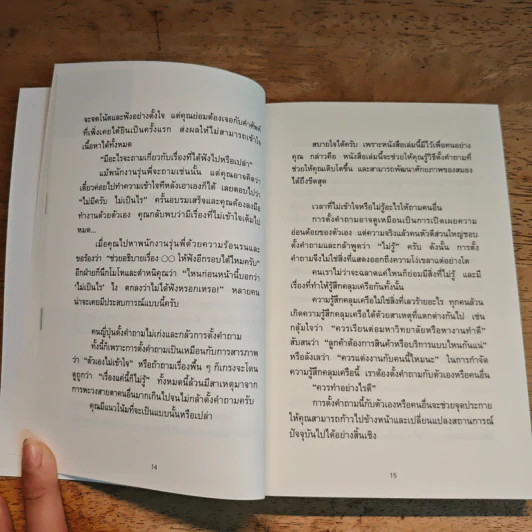 จะจดโน้ตและฟังอย่างตั้งใจ แต่คุณย่อมต้องเจอกับคำศัพท์
ที่เพิ่งเคยได้ยินเป็นครั้งแรก ส่งผลให้ไม่สามารถเข้าใจ
เนื้อหาได้ทั้งหมด
"มีอะไรจะถามเกี่ยวกับเรื่องที่ได้ฟังไปหรือเปล่า"
แม้พนักงานรุ่นพี่จะถามเช่นนั้น แต่คุณอาจคิดว่า
เดี๋ยวค่อยไปทำความเข้าใจทีหลังเอาเองก็ได้ เลยตอบไปว่า
"ไม่มีครับ ไม่เป็นไร" ครั้นอบรมเสร็จและคุณต้องลงมือ
ทำงานด้วยตัวเอง คุณกลับพบว่ามีเรื่องที่ไม่เข้าใจเต็มไป
หมด...
เมื่อคุณไปหาพนักงานรุ่นพี่ด้วยความร้อนรนและ
ขอร้องว่า "ช่วยอธิบายเรื่อง ○○ ให้ฟังอีกรอบได้ไหมครับ"
อีกฝ่ายก็ฉีกโมโหและตำหนิคุณว่า "ไหนก่อนหน้านี้บอกว่า
'ไม่เป็นไร' ไง ตกลงว่าไม่ได้ฟังหรอกเหรอ!" หลายคน
น่าจะเคยมีประสบการณ์แบบนี้ครับ
คนญี่ปุ่นตั้งคำถามไม่เก่งและกลัวการตั้งคำถาม
ทั้งนี้ก็เพราะการตั้งคำถามเป็นเหมือนกับการสารภาพ
ว่า "ตัวเองไม่เข้าใจ" หรือถ้าถามเรื่องพื้น ๆ ก็เกรงจะโดน
ดูถูกว่า "เรื่องแค่นี้ก็ไม่รู้" ทั้งหมดนี้ล้วนมีสาเหตุมาจาก
การพะวงสายตาคนอื่นมากเกินไปจนไม่กล้าตั้งคำถามครับ
คุณมีแนวโน้มที่จะเป็นแบบนั้นหรือเปล่า
14
สบายใจได้ครับ เพราะหนังสือเล่มนี้มีไว้เพื่อคนอย่าง
คุณ กล่าวคือ หนังสือเล่มนี้จะช่วยให้คุณรู้วิธีตั้งคำถามที่
ช่วยให้คุณเติบโตขึ้น และสามารถพัฒนาศักยภาพของสมอง
ได้ถึงขีดสุด
เวลาที่ไม่เข้าใจหรือไม่รู้อะไรให้ถามคนอื่น
การตั้งคำถามอาจดูเหมือนเป็นการเปิดเผยความ
อ่อนด้อยของตัวเอง แต่ความจริงแล้วคนหัวดีส่วนใหญ่ชอบ
ตั้งคำถามและกล้าพูดว่า "ไม่รู้" ครับ ดังนั้น การตั้ง
คำถามจึงไม่ใช่สิ่งที่แสดงออกถึงความโง่เขลาแต่อย่างใด
คนเราไม่ว่าจะฉลาดแค่ไหนก็ย่อมมีสิ่งที่ไม่รู้ และมี
เรื่องที่ทำให้รู้สึกคลุมเครือกันทั้งนั้น
ความรู้สึกคลุมเครือไม่ใช่สิ่งที่เลวร้ายอะไร ทุกคนล้วน
เกิดความรู้สึกคลุมเครือได้ด้วยสาเหตุที่แตกต่างกันไป เช่น
กลุ้มใจว่า "ควรเรียนต่อมหาวิทยาลัยหรือหางานทำดี"
สับสนว่า "ลูกค้าต้องการสินค้าหรือบริการแบบไหนกันแน่"
หรือลังเลว่า "ควรแต่งงานกับคนนี้ไหมนะ" ในการกำจัด
ความรู้สึกคลุมเครือนี้ เราต้องตั้งคำถามกับตัวเองหรือคนอื่น
"ควรทำอย่างไรดี"
การตั้งคำถามนี้กับตัวเองหรือคนอื่นจะช่วยจุดประกาย
ให้คุณสามารถก้าวไปข้างหน้าและเปลี่ยนแปลงสถานการณ์
ปัจจุบันไปได้อย่างสิ้นเชิง
15